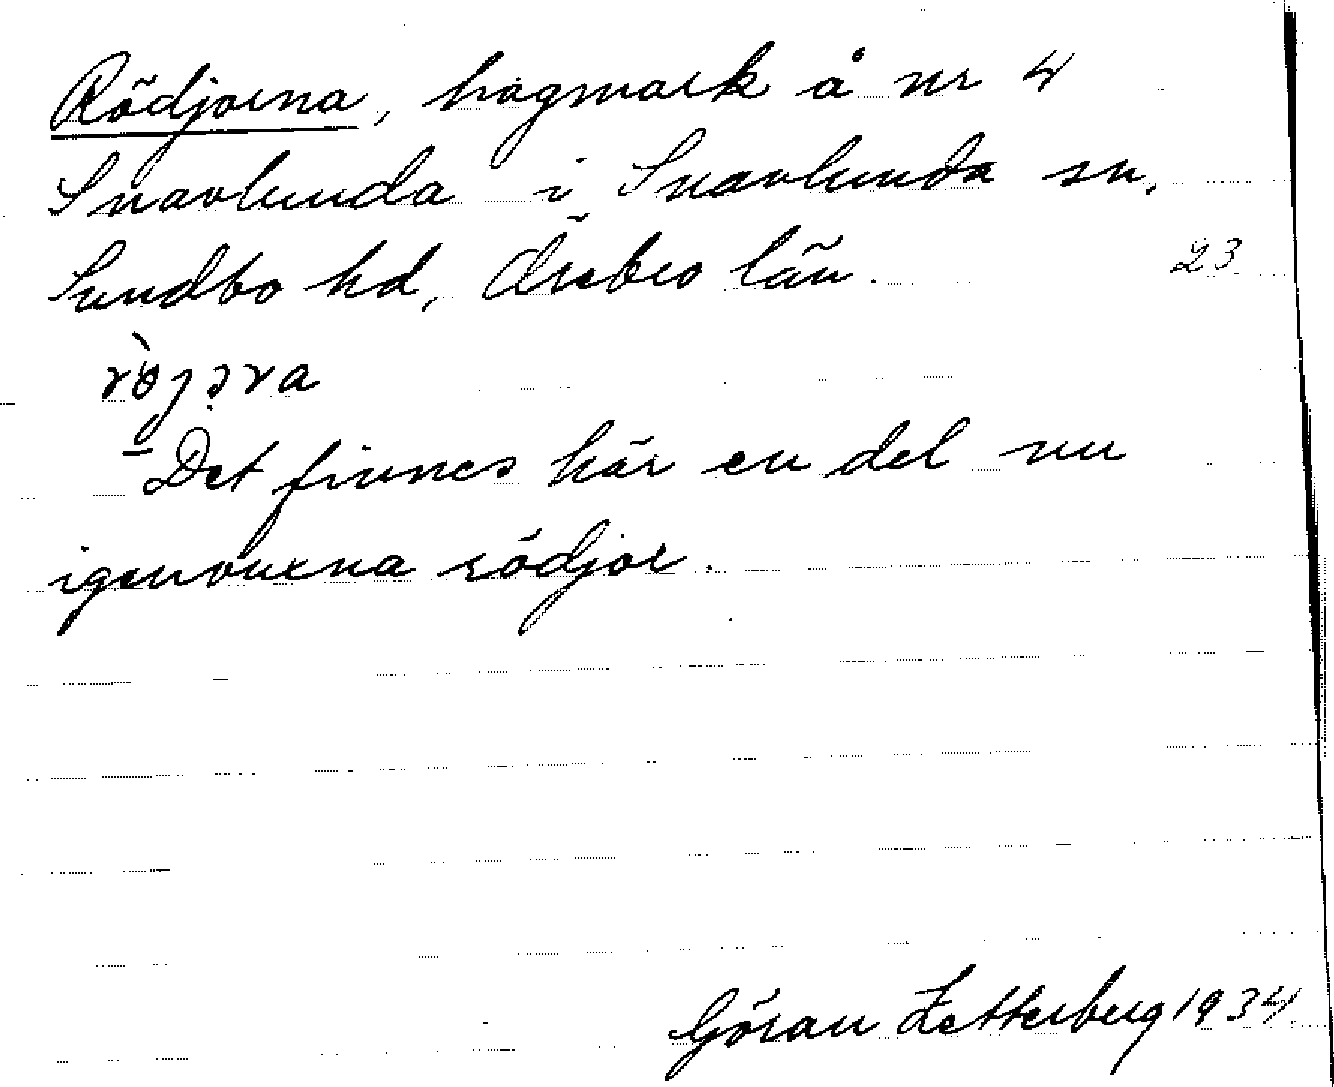 Rödjorna, hagmark å nr 4
Snavlunda i Snavlunda sn.
Sundbo hd, Örebro län.
23
Det finnes här en del nu
igenvuxna rödjor.
Göran Zetterberg 1934